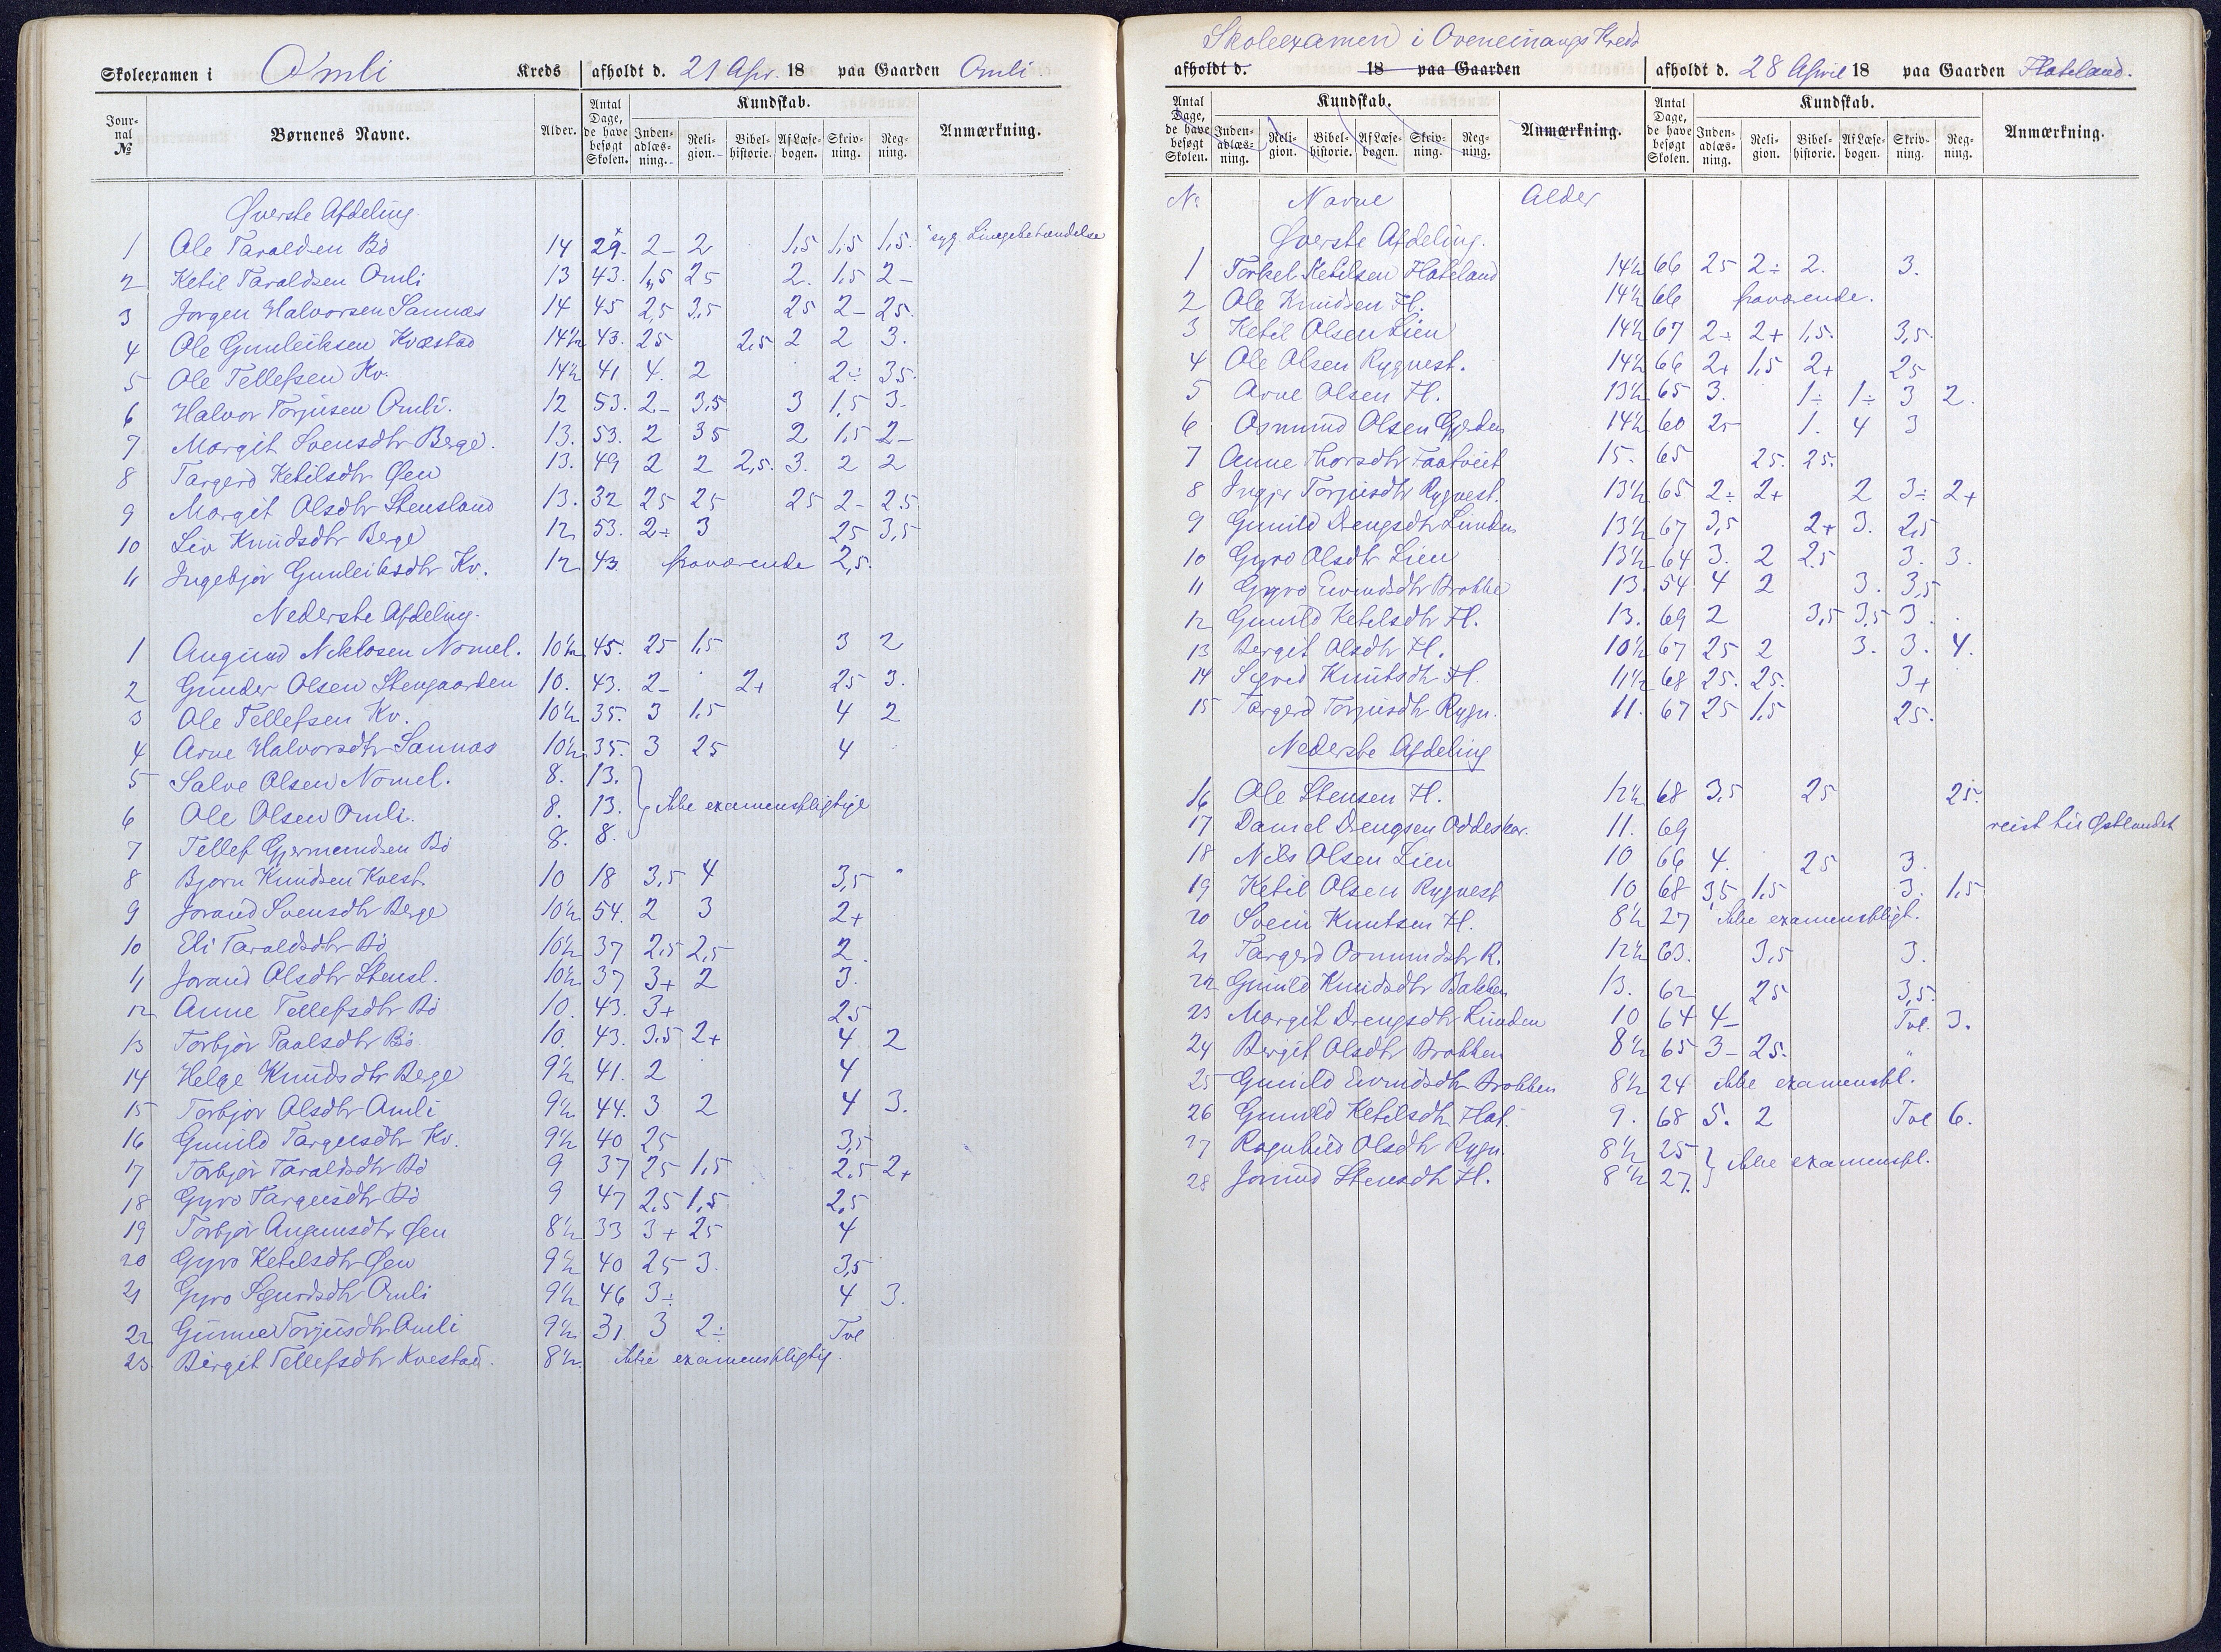 Skoleexamen i Omli Kreds afholdt d. 21 Apr. 18 paa Gaarden Omli
Jour-nal № Børnenes Navne. Alder. Antal Dage, de have besøgt Skolen. Kundskab. Inden-adlæs-ning. Reli-gion. Bibel-historie. Af Læse-bogen. Skriv-ning. Reg-ning. Anmærkning.
Øverste Afdeling
1 Ole Taraldsen Bö 14 29. 2- 2 1,5 1,5 1,5. syg.
2 Ketil Taraldsen Omli 13 43. 1,5 25 2. 1,5 2-
3 Jorgen Halvorsen Sannes 14 45 2,5 3,5 25 2- 25.
4 Ole Gunleiksen Kvæstad 14½ 43. 25 2,5 2 2 3.
5 Ole Tellefsen Kv. 14½ 41 4. 2 2÷ 35.
6 Halvor Torjusen Omli. 12 53. 2- 3,5 3 1,5 3-
7 Margit Svensdtr Berge. 13. 53. 2 35 2 1,5 2-
8 Targerd Ketilsdtr Øen 13. 49 2 2 2,5. 3. 2 2
9 Margit Olsdtr Stensland 13. 32 25 25 25 2- 2.5
10 Liv Knudsdtr Berge 12 53. 2÷ 3 25 3,5
11 Ingebjör Gunleiksdtr Kv. 12 43 fraværende 2,5.
Nederste Afdeling.
1 Augund Niklosen Nomel. 10½ 45. 25 1,5 3 2
2 Gunder Olsen Stengaarden 10. 43. 2- 2+ 25 3.
3 Ole Tellefsen Kv. 10½ 35. 3 1.5 4 2
4 Arne Halvorsdtr Sannes 10½ 35. 3 25 4
5 Salve Olsen Nomel. 8. 13.
6 Ole Olsen Omli. 8. 13. ikke examenspligtige
7 Tellef Gjermundsen Bö 8. 8.
8 Bjorn Knudsen Kvest. 10 18 3,5 4 3,5
9 Jorand Svensdtr Berge 10½ 54. 2 3 2+
10 Eli Taraldsdtr Bö 10½ 37 2,5 2,5 2.
11 Jorand Olsdtr Stensl. 10½ 37 3+ 2 3.
12 Anne Tellefsdtr Bö 10. 43. 3+ 25
13 Torbjör Paalsdtr Bö 10. 43. 3.5 2+ 4 2
14 Helge Knudsdtr Berge 9½ 41. 2 4
15 Torbjör Olsdtr Omli 9½ 44. 3 2 4 3.
16 Gunild Targusdtr Kv. 9½ 40 25 3,5
17 Torbjör Taraldsdtr Bö 9 37 25 1,5 2.5 2+
18 Gyro Targusdtr Bö 9 47 2.5 1,5 2,5
19 Torbjör Augunsdtr Øen 8½ 33 3+ 25 4
20 Gyro Ketelsdtr Øen 9½ 40 25 3. 3,5
21 Gyro Sgurdsdtr Omli 9½ 46 3÷ 4 3.
22 Gunne Torjusdtr Omli 9½ 31. 3 2÷ Tvl
23. Birgit Tellefsdtr Kvestad. 8½. ikke examenspligtig.
Skoleexamen i Oveneinangs Kreds
afholdt d. 18 paa Gaarden afholdt d. 28 April 18 paa Gaarden Flateland.
Antal Dage, de have besøgt Skolen. Kundskab. Inden-adlæs-ning. Reli-gion. Bibel-historie. Af Læse-bogen. Skriv-ning. Reg-ning. Anmærkning. Antal Dage, de have besøgt Skolen. Kundskab. Inden-adlæs-ning. Reli-gion. Bibel-historie. Af Læse-bogen. Skriv-ning. Reg-ning. Anmærkning.
No Navne Alder
Øverste Afdeling.
1 Torkel Ketilsen Flateland 14½ 66 25 2÷ 2. 3.
2 Ole Knudsen Fl. 14½ 66 fraværende.
3 Ketil Olsen Lien 14½ 67 2÷ 2+ 1,5. 3,5.
4 Ole Olsen Rygnest. 14½ 66 2+ 1,5 2+ 25
5 Arne Olsen Fl. 13½ 65 3. 1÷ 1÷ 3 2.
6 Osmund Olsen Gjerden 14½ 60 25 1. 4 3
7 Anne Thorsdtr Faatveit 15- 65 25. 25.
8 Ingjer Torjusdtr Rygnest. 13½ 65 2÷ 2+ 2 3÷ 2+
9 Gunild Drengsdtr Lunden 13½ 67 3,5 2+ 3. 2,5
10 Gyro Olsdtr Lien 13½ 64 3. 2 2.5 3. 3.
11 Gyro Eivindsdtr Brokke 13. 54 4 2 3. 3,5
12 Gunild Ketelsdtr Fl. 13. 69 2 3,5 3,5 3.
13 Bergit Olsdtr Fl. 10½ 67 25 2 3. 3. 4.
14 Sigrid Knutsdtr Fl. 11½ 68 25. 25. 3+
15 Targerd Torjusdtr Rygn. 11. 67 25 1,5 25.
Nederste Afdeling
16 Ole Stensen Fl. 12½ 68 3,5 25 25.
17 Daniel Drengsen Oddeskar. 11. 69 reist til Østlandet
18 Nils Olsen Lien 10 66 4. 25 3.
19 Ketil Olsen Rygnest 10 68 3,5 1,5 3. 1,5
20 Svein Knutsen Fl. 8½ 27 ikke examenspligt.
21 Targerd Osmundsdtr R. 12½ 63. 3,5 3.
22 Gunild Knudsdtr Bakken 13. 62 25 3,5.
23 Margit Drengsdtr Lunden 10 64 4- Tvl. 3.
24 Bergit Olsdtr Brokken 8½ 65 3- 25. "
25 Gunild Eivindsdtr Brokken 8½ 24 ikke examenspl.
26 Gunild Ketelsdtr Flat. 9. 68 5. 2 Tvl 6.
27 Ragnhild Olsdtr Rygn. 8½ 25 ikke examenspl.
28 Jorund Stensdtr Fl. 8½ 27.